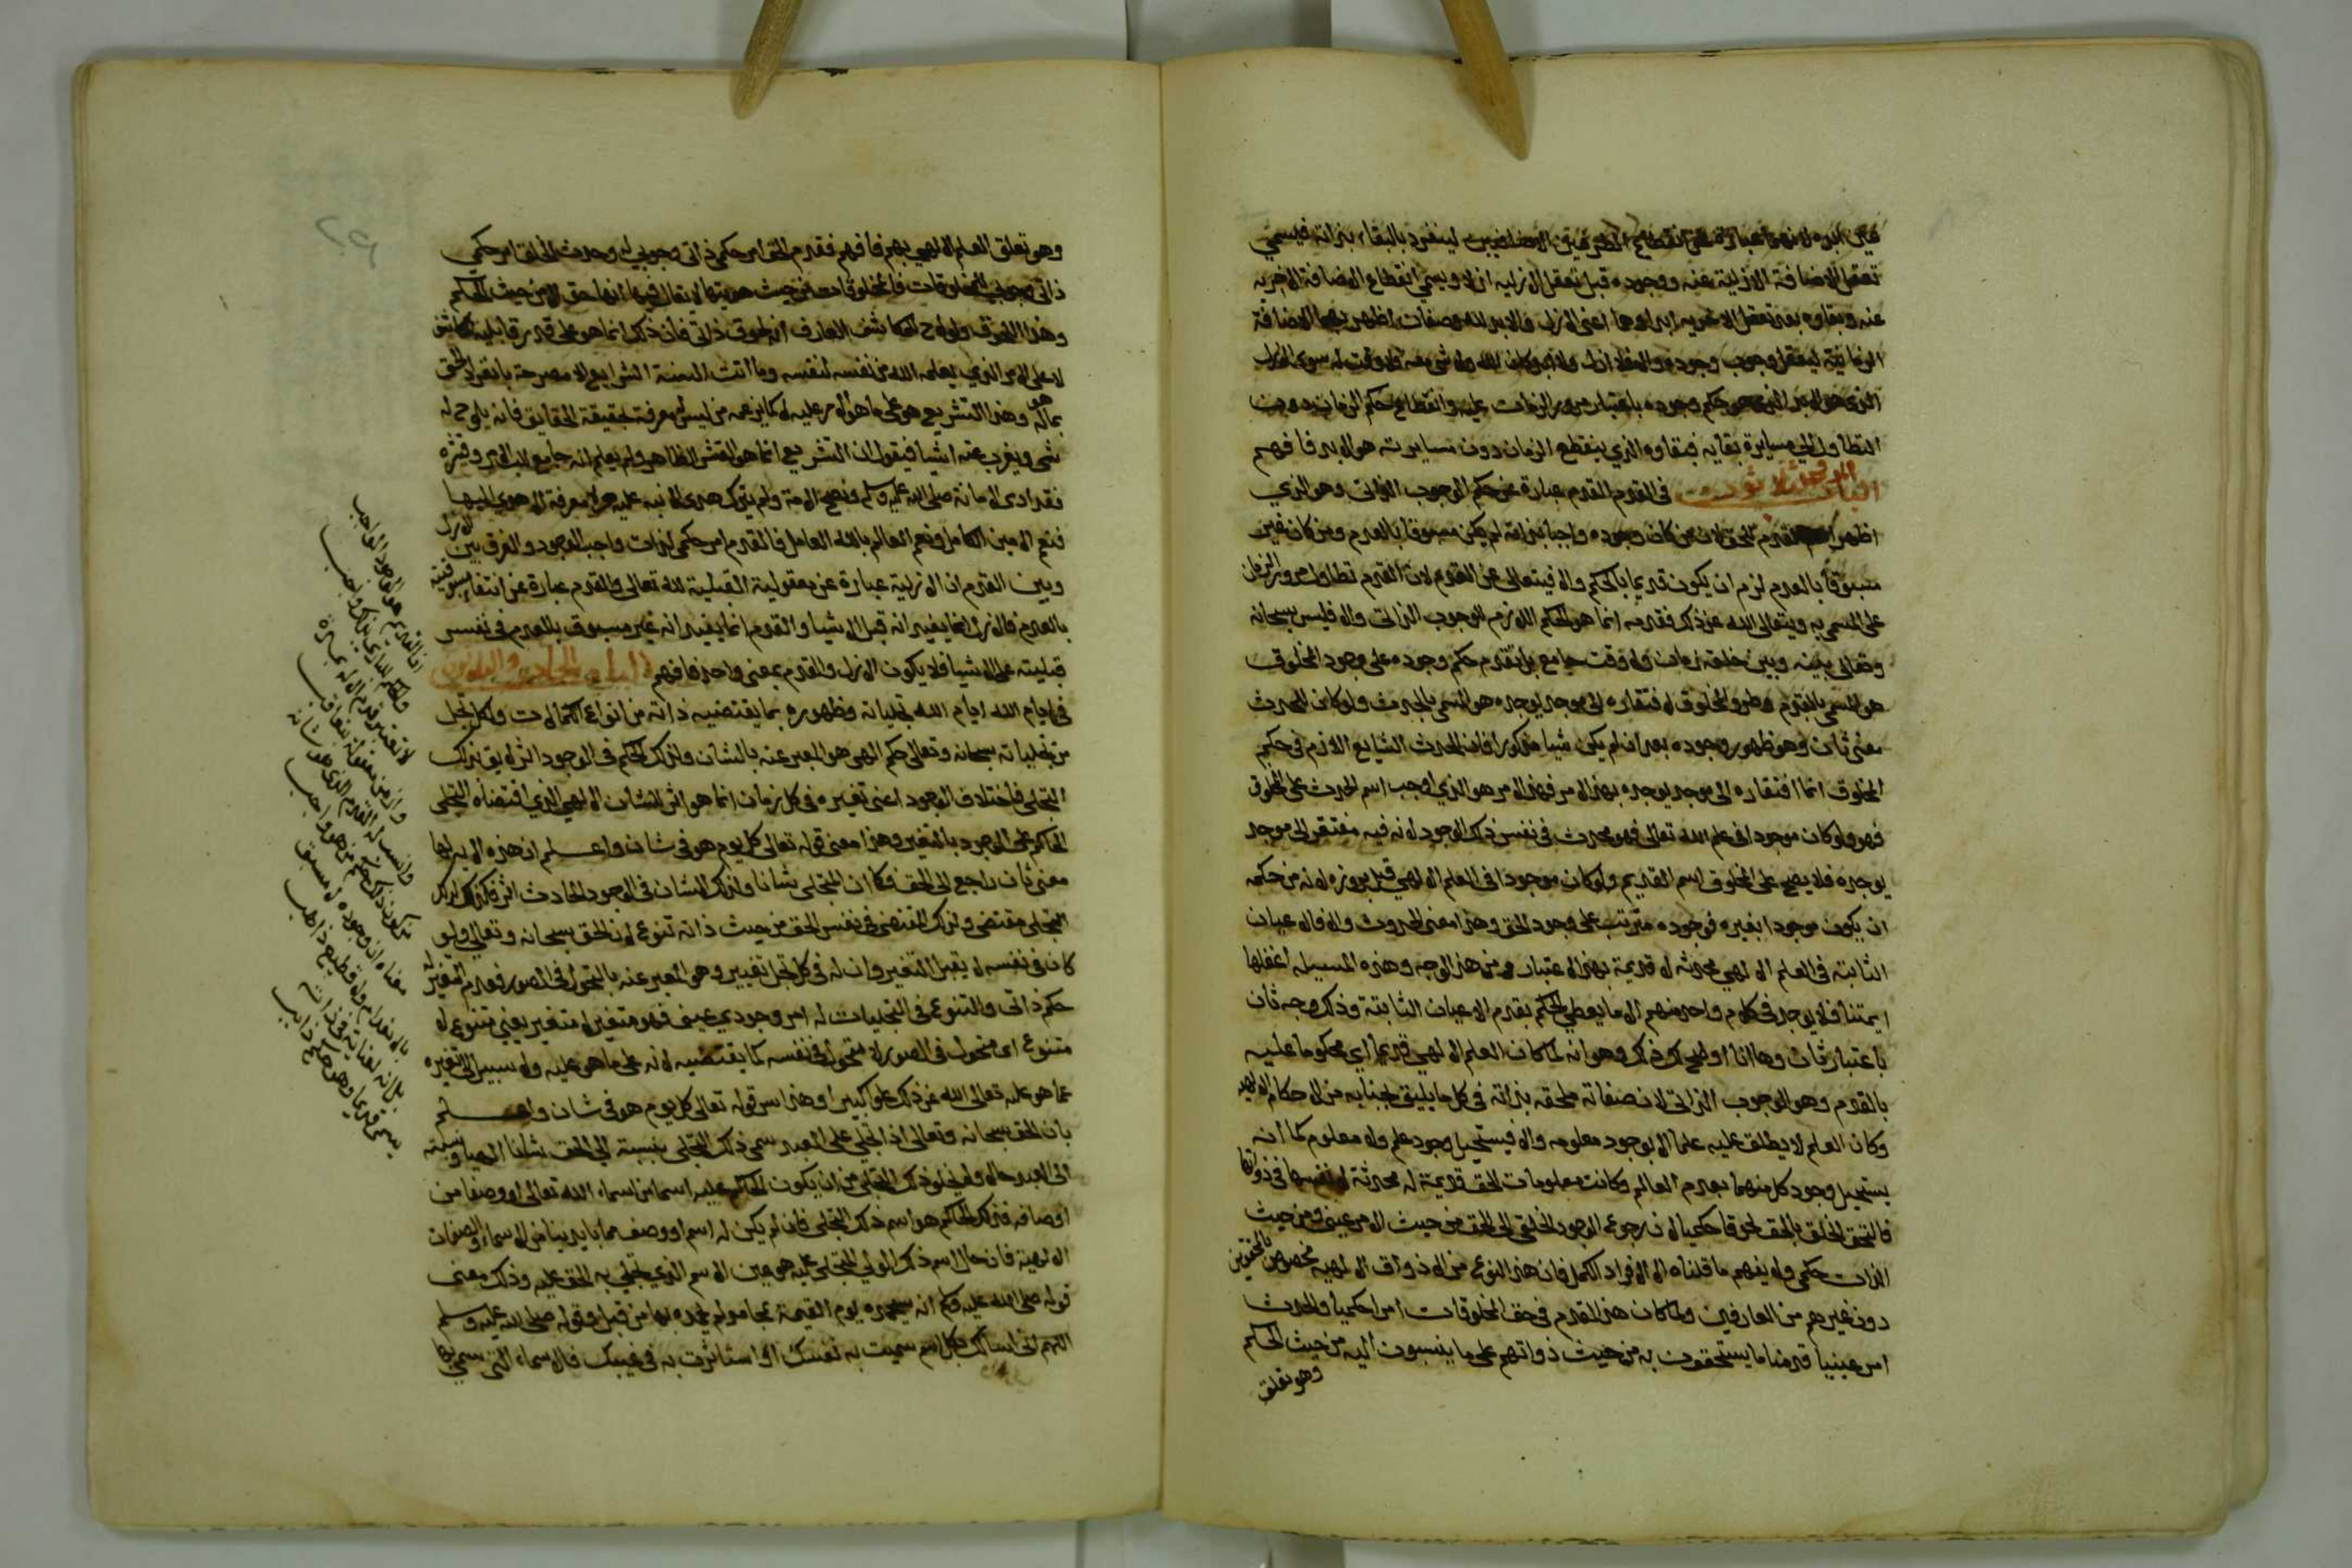 تعقل الاضافة الازلية عنه ووجوده قبل تعقل الازلية ازلا ويسمى انقطاع الاضافة الاخرية
عنه وبقاوه بعد تعقل الاخرية ابدا وهما اعنى الازل والابد لله وصفان اظهرتهما الاضافة
الزمانية لتعقل وجوب وجوده والا فلا ازل ولا ابد كان الله ولا شي معه فلا وقت له سوى الازل
الذي هو الابد الذي هو حكم وجوده باعتبار مرور الزمان عليه وانقطاع حكم الزمان دون
التطاول الى مسايرة بقايه فبقاوه الذي ينقطع الزمان دون مسايرته هو الابد فافهم
الباب الموفي ثلاثون في القدم القدم عبارة عن حكم الوجوب الذاتي وهو الذي
اظهر اسمه القديم للحق لان من كان وجوده واجبا بذاته لم يكن مسبوقا بالعدم ومن كان غير
مسبوقا بالعدم لزم ان يكون قديما بالحكم والا فيتعالى عن القدم لان القدم تطاول مرور الزمان
على المسمى به ويتعالى الله عن ذلك فقدمه انما هو الحكم اللازم للوجوب الذاتي والا فليس بينه سبحانه
وتعالى بينه وبين خلقه زمان ولا وقت جامع بل تقدم حكم وجوده على وجود المخلوق
هو المسمى بالقدم وطرو المخلوق لافتقاره الى موجد يوجده هو المسمى بالحدوث ولو كان للحدوث
معنى ثان وهو ظهور وجوده بعد ان لم يكن شيا مذكورا فان الحدوث الشايع اللازم في حكم
المخلوق انما افتقاره الى موجد يوجده فهذا الامر هو الذي اوجب اسم الحدوث على المخلوق
فهو ولو كان موجودا في علم الله تعالى فهو محدث في نفس ذلك الوجود لانه فيه مفتقر الى موجد
يوجده فلا يصح على المخلوق اسم القديم ولو كان موجودا في العلم الالهي قبل بروزه لانه من حكمه
ان يكون موجودا بغيره فوجوده مترتب على وجود الحق وهذا معنى الحدوث والا فالاعيان
الثابتة في العلم الالهي محدثة لا قديمة بهذا الاعتبار ومن هذا الوجه وهذه المسيلة اغفلها
ايمتنا فلا يوجد في كلام واحد منهم الا ما يعطي الحكم بقدم الاعيان الثابتة وذلك وجه ثان
باعتبار ثان وها انا اوضح لك ذلك وهو انه لما كان العلم الالهي قديما اي محكوما عليه
بالقدم وهو الوجوب الذاتي لان صفاته ملحقه بذاته في كل ما يليق بجنابه من الاحكام الالهية
وكان العلم لا يطلق عليه علما الا بوجود معلومه والا فيستحيل وجود علم ولا معلوم كما انه
يستحيل وجود كل منهما بعدم العالم وكانت معلومات الحق قديمة له محدثة لانفسها في ذواتها
فالتحق الخلق بالحق لحوقا حكميا لان رجوع الوجود الخلقي الى الحق من حيث الامر عيني ومن حيث
الذات حكمي ولا يفهم ما قلناه الا الافراد الكمل فان هذا النوع من الاذواق الالهيه مخصوص بالمحققين
دون غيرهم من العارفين ولما كان هذا القدم في حق المخلوقات امرا حكميا والحدث
امر عينيا قدمنا ما يستحقون به من حيث ذواتهم على ما ينسبون اليه من حيث الحكم
وهو تعلق
وهو تعلق العلم الالهي بهم فافهم فقدم الحق امر حكمي ذاتي وجوبي له وحدث الخلق امر حكمي
ذاتي وجوبي للمخلوقات فالمخلوقات من حيث هويتها لا يقال فيها انها حق الا من حيث الحكم
لا على الامر الذي يعلمه الله من نفسه لنفسه وما اتت السنة الشرايع الا مصرحة بانفراد الحق
بما هو له وهذا التشريع هو على ما هو الامر عليه لا كما يزعمه من ليس له معرفة بحقيقة الحقايق فانه يلوح له
شي ويغرب عنه اشيا فيقول ان التشريع انما هو القشر الظاهر ولم يعلم انه جامع للب الامر وقشره
فقد ادى الامانة صلى الله عليه وسلم ونصح الامة ولم يترك هدى الا نبه عليه ولا معرفة الا هدى اليها
فنعم الامين الكامل ونعم العالم بالله العامل فالقدم امر حكمي لذات واجب الوجود والفرق بين الازل
وبين القدم ان الازلية عبارة عن معقولية القبلية لله تعالى والقدم عبارة عن انتفاء مسبوقيته
بالعدم فالازل انما يفيد انه قبل الاشيا والقدم انما يفيد انه غير مسبوق بالعدم في نفس
قبليته على الاشيا فلا يكون الازل والقدم بمعنى واحد فافهم الباب الحادي والثلاثون
في ايام الله ايام الله تجلياته وظهوره بما يقتضيه ذاته من انواع الكمالات ولكل تجل
من تجلياته سبحانه وتعالى حكم الهي هو المعبر عنه بالشان ولذلك الحكم في الوجود اثر لايق بذلك
التجلي فاختلاف الوجود اعنى تغيره في كل زمان انما هو اثر للشان الالهي الذي اقتضاه التجلي
الحاكم على الوجود بالتغير وهذا معنى قوله تعالى كل يوم هو في شان واعلم ان هذه الاية لها
معنى ثان راجع الى الحق فكما ان للتجلي شانا ولذلك الشان في الوجود الحادث اثر فكذلك لذلك
التجلي مقتضى ولذلك المقتضى في نفس الحق من حيث ذاته تنوع لان الحق سبحانه وتعالى ولو
كان في نفسه لا يقبل التغير فان له في كل تجل تغيير وهو المعبر عنه بالتحول في الصور فعدم التغير له
حكم ذاتي والتنوع في التجليات له امر وجودي عيني فهو متغير لا متغير يعني متنوع لا
متنوع اي متحول في الصور لا متحول في نفسه كما يقتضيه لانه على ما هو عليه ولا سبيل الى تغيره
عما هو عليه تعالى الله عن ذلك علوا كبيرا وهذا سر قوله تعالى كل يوم هو في شان واعلم
بان الحق سبحانه وتعالى اذا تجلى على العبد سمى ذلك التجلي بنسبته الى الحق شانا الهيا وبنسبته
الى العبد حالا ولا يخلو ذلك التجلي من ان يكون الحاكم عليه اسما من اسماء الله تعالى او وصفا من
اوصافه فذلك الحاكم هو اسم ذلك التجلي فان لم يكن له اسم او وصف مما بايدينا من الاسماء والصفات
الالهية فان حال اسم ذلك الولي المتجلى عليه هو عين الاسم الذي تجلى به الحق عليه وذلك معنى
قوله صلى الله عليه وسلم انه سيحمده يوم القيمة بمحامد لم يحمده بها من قبل وقوله صلى الله عليه وسلم
اللهم اني اسالك بكل اسم سميت به نفسك او استاثرت به في غيبك فالاسماء التي سمي بها